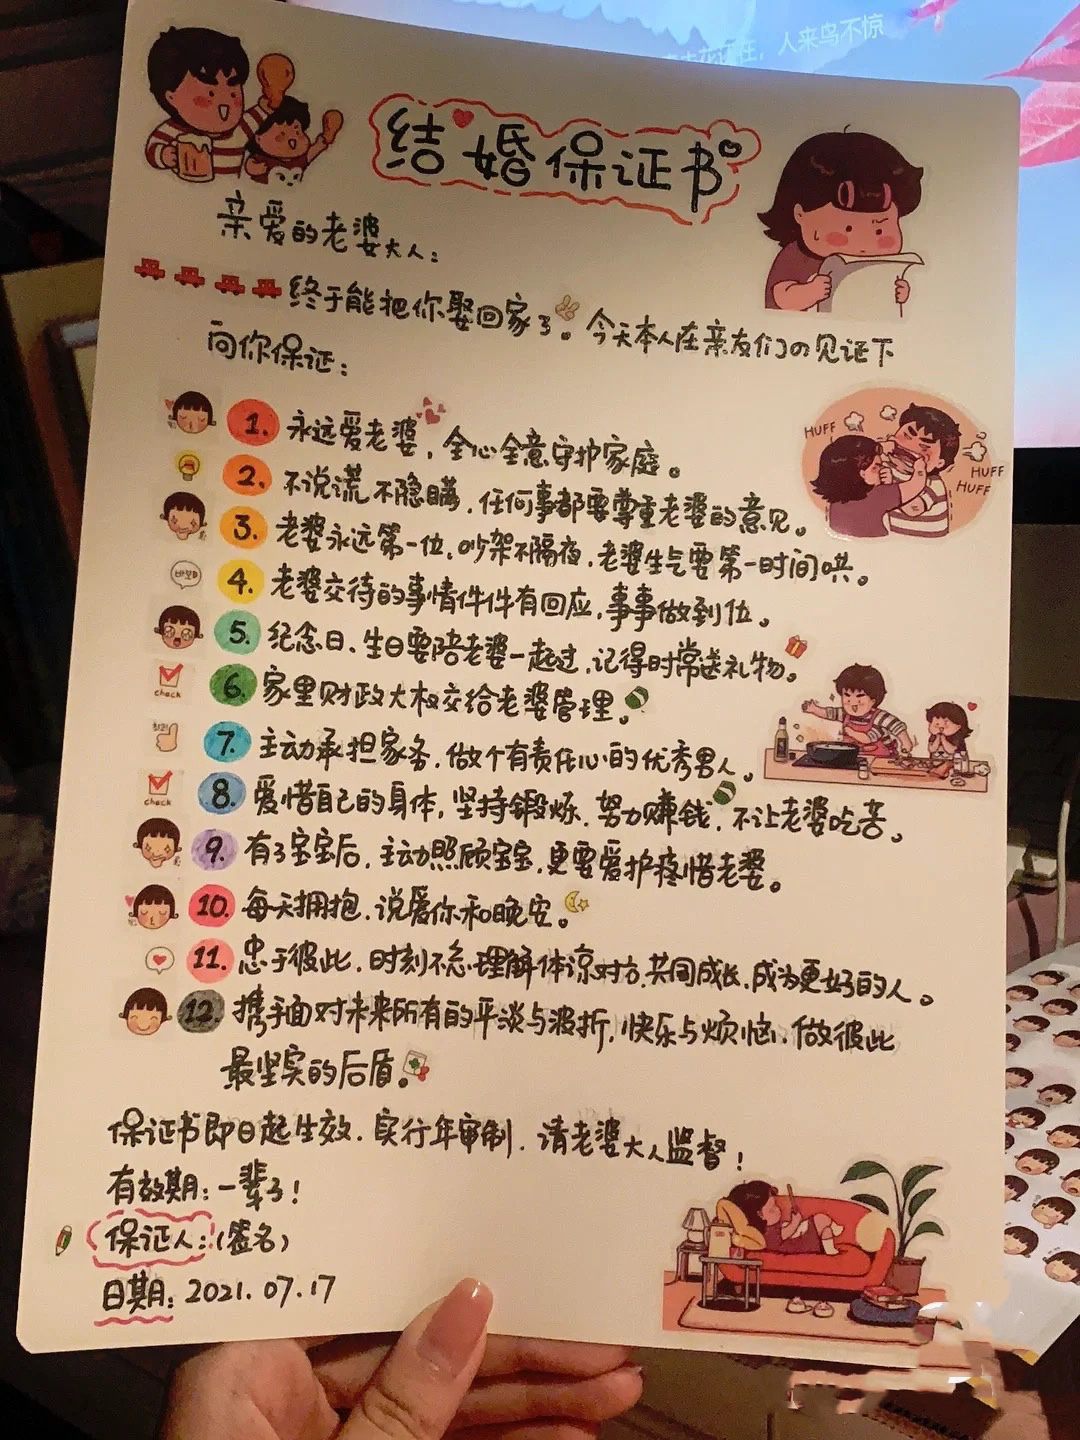 人来鸟不惊
结婚保证书
亲爱的老婆大人：
终于能把你娶回家了。今天本人在亲友们の见证下
向你保证：
1. 永远爱老婆，全心全意守护家庭。
HUFF
HUFF
HUFF
2. 不说谎不隐瞒，任何事都要尊重老婆的意见。
3. 老婆永远第一位，吵架不隔夜，老婆生气要第一时间哄。
4. 老婆交待的事情件件有回应，事事做到位。
5. 纪念日、生日要陪老婆一起过，记得时常送礼物。
check
6. 家里财政大权交给老婆管理。
7. 主动承担家务，做个有责任心的优秀男人。
check
8. 爱惜自己的身体，坚持锻炼，努力赚钱，不让老婆吃苦。
9. 有了宝宝后，主动照顾宝宝，更要爱护疼惜老婆。
10. 每天拥抱，说爱你和晚安。
11. 忠于彼此，时刻不忘理解体谅对方，共同成长，成为更好的人。
12. 携手面对未来所有的平淡与波折，快乐与烦恼，做彼此
最坚实的后盾。
保证书即日起生效，实行年审制，请老婆大人监督！
有效期：一辈子！
保证人：（签名）
日期：2021.07.17